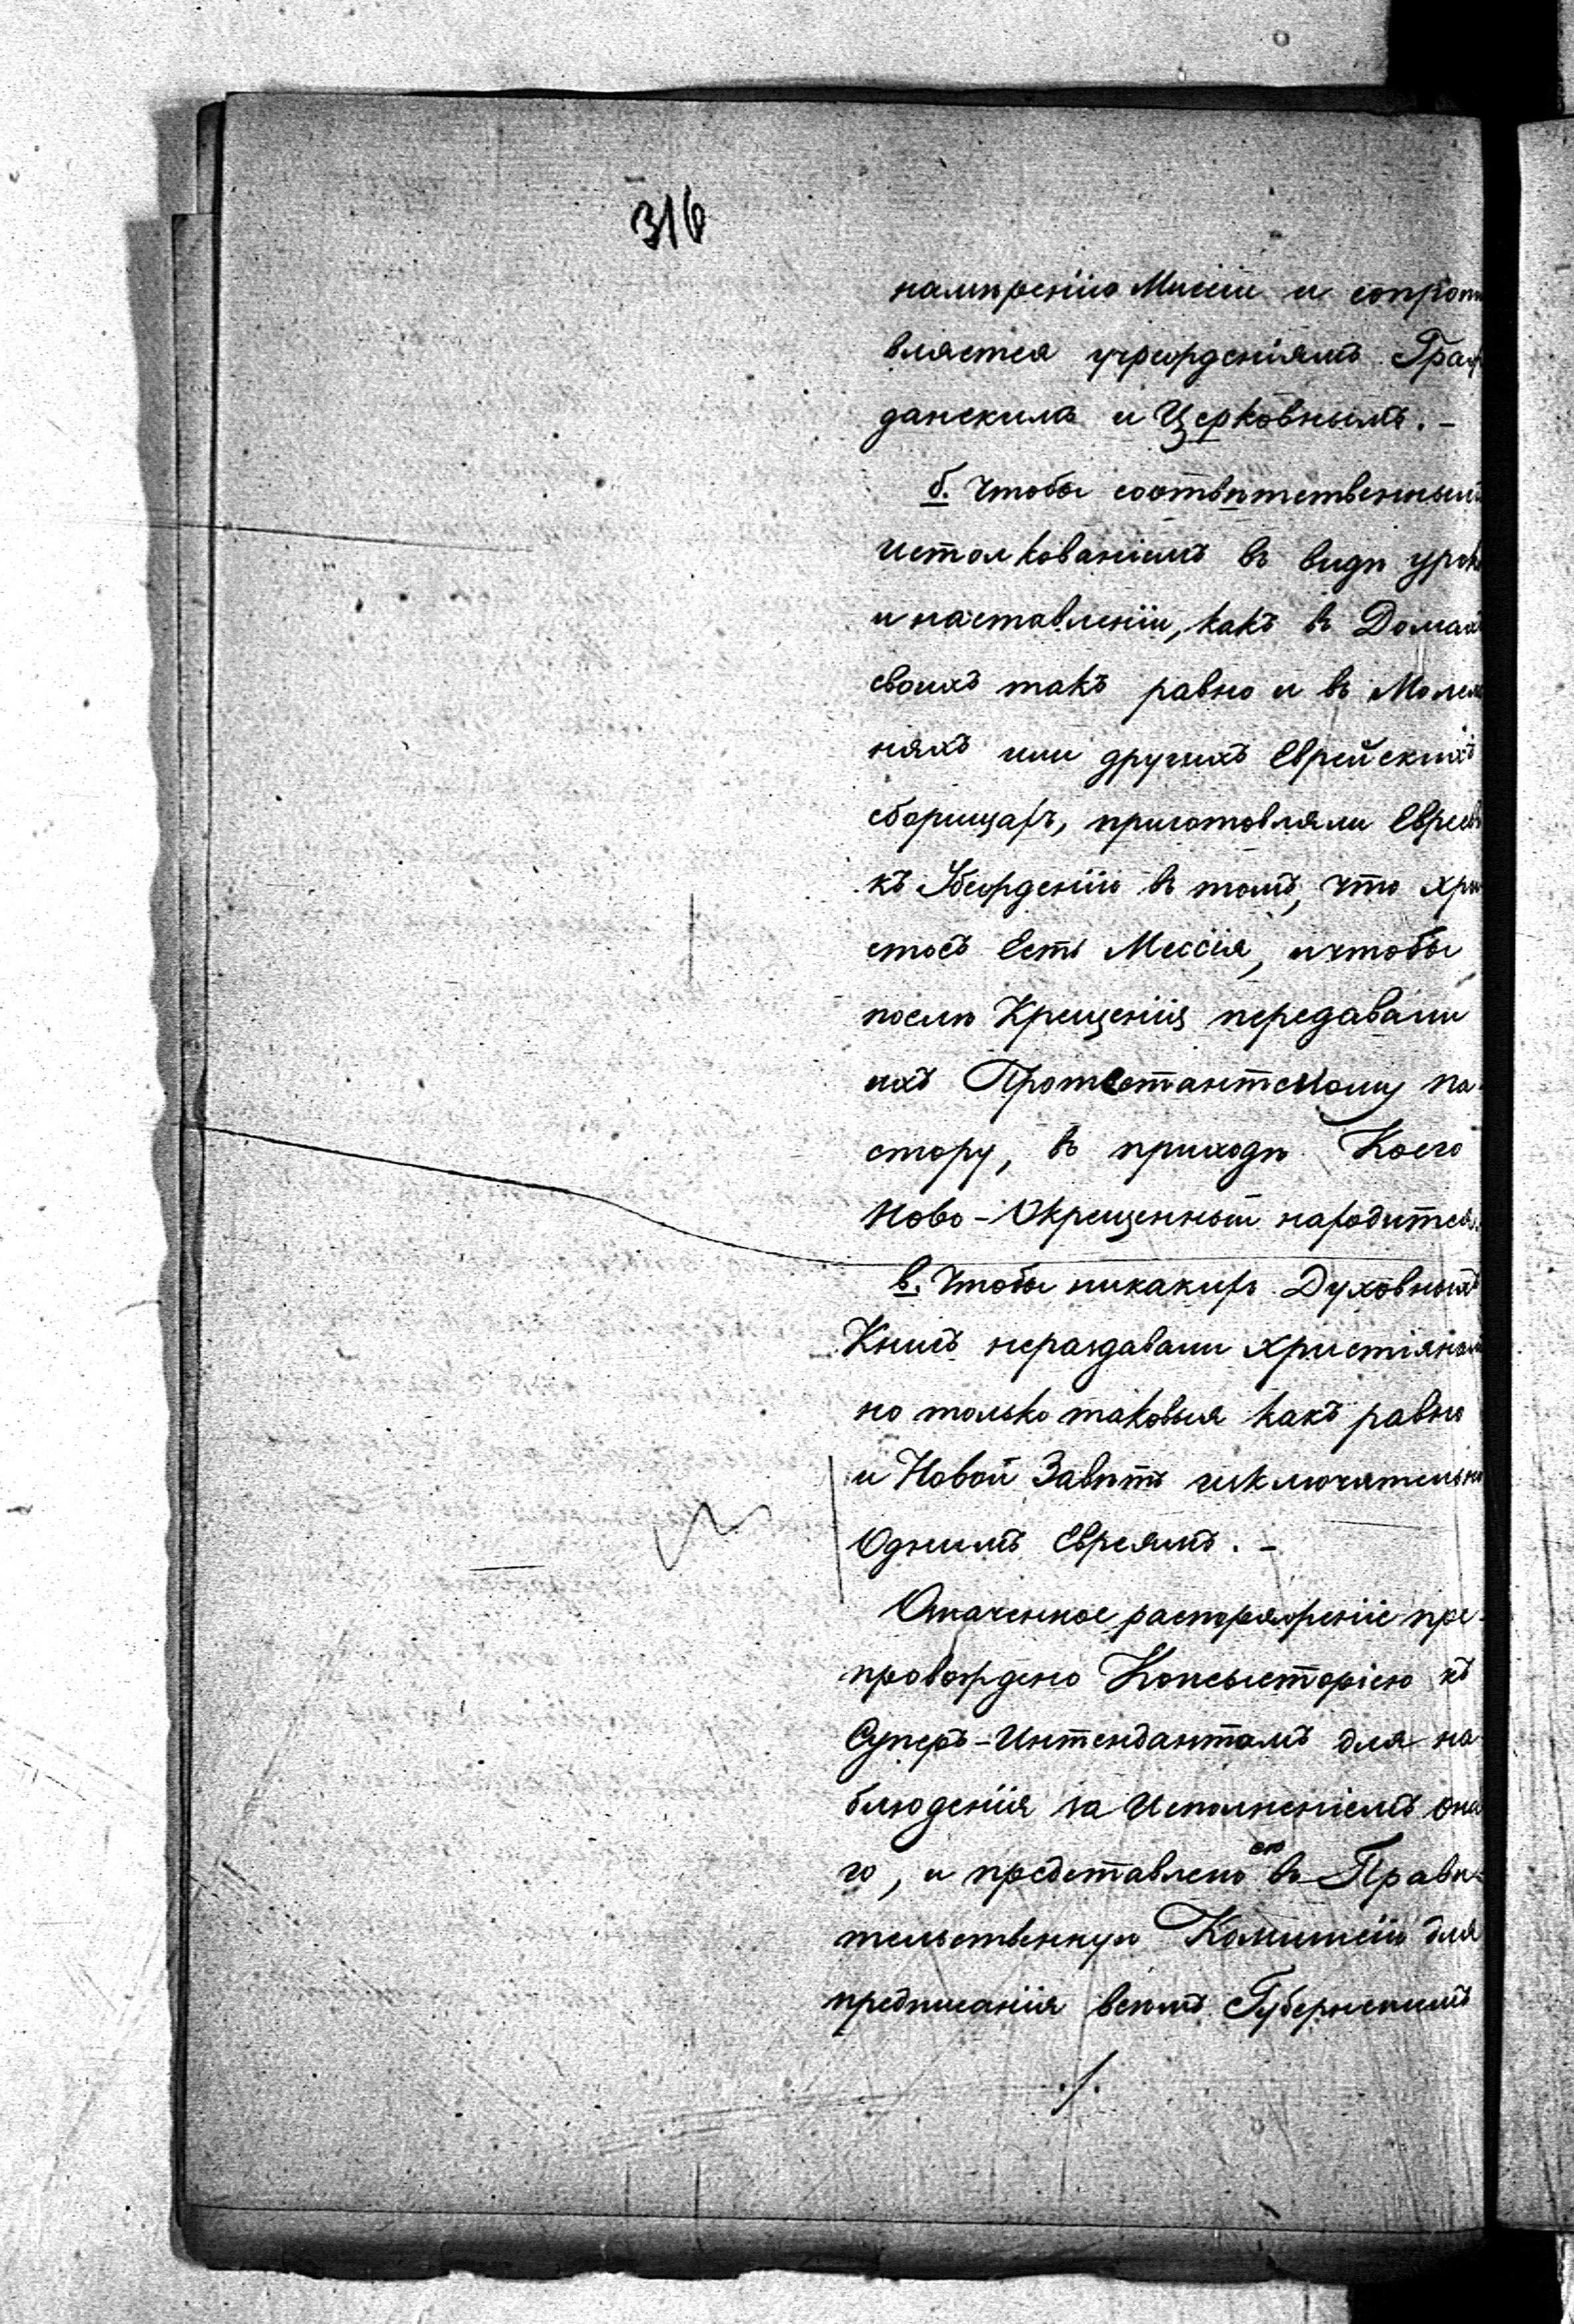 316
намѣренію Миссіи и сопроти
вляется учрежденіямъ Граж
данскимъ и Церковнымъ. -
б. Чтобы соотвѣтственнымъ
истолкованіемъ въ видѣ урок
и наставленіи, какъ въ Домахъ
своихъ такъ равно и въ Молел
няхъ или другихъ Еврейскихъ
сборищахъ, приготовляли Евреевъ
къ Убежденію въ томъ, что Хри
стосъ Есть Мессія, и чтобы
послѣ Крещенія передавали
ихъ Протестантскому па-
стору, въ приходѣ Коего
Ново-Окрещенный находится.
в. Чтобы никакихъ Духовныхъ
Книгъ нераздавали Христіянамъ
но только таковыя какъ равно
и Новой Завѣтъ исключительно
Однимъ Евреямъ. -
Означенное распоряженіе пре-
провождено Консысторіею къ
Суперъ-Интендантамъ для на
блюденія за Исполненіемъ она
го, и представлено ею въ Прави-
тельственную Комисію для
предписанія всѣмъ Губернскимъ
./.